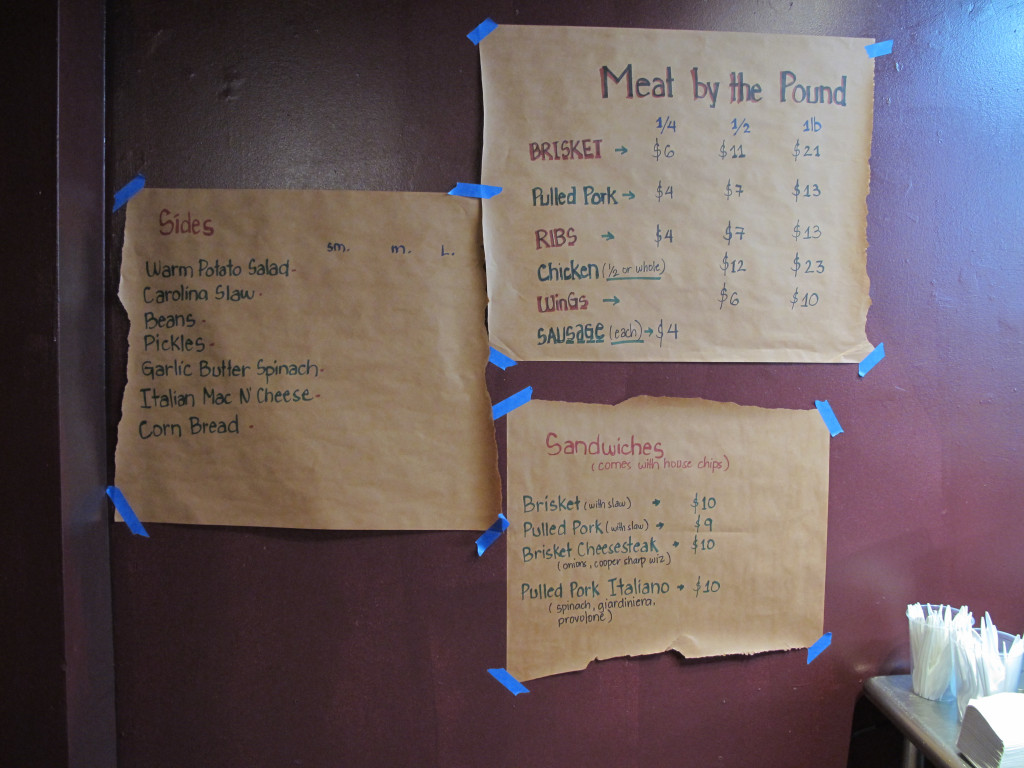 Meat by the Pound
1/4 1/2 1lb
BRISKET → $6 $11 $21
Pulled Pork → $4 $7 $13
RIBS → $4 $7 $13
Chicken (1/2 or whole) $12 $23
WinGs → $6 $10
SAUSAGE (each) → $4
Sides
sm. m. L.
Warm Potato Salad-
Carolina Slaw -
Beans -
Pickles -
Garlic Butter Spinach-
Italian Mac N' Cheese-
Corn Bread -
Sandwiches
(comes with house chips)
Brisket (with slaw) → $10
Pulled Pork (with slaw) → $9
Brisket Cheesesteak → $10
(onions, cooper sharp wiz)
Pulled Pork Italiano → $10
(spinach, giardiniera,
provolone)